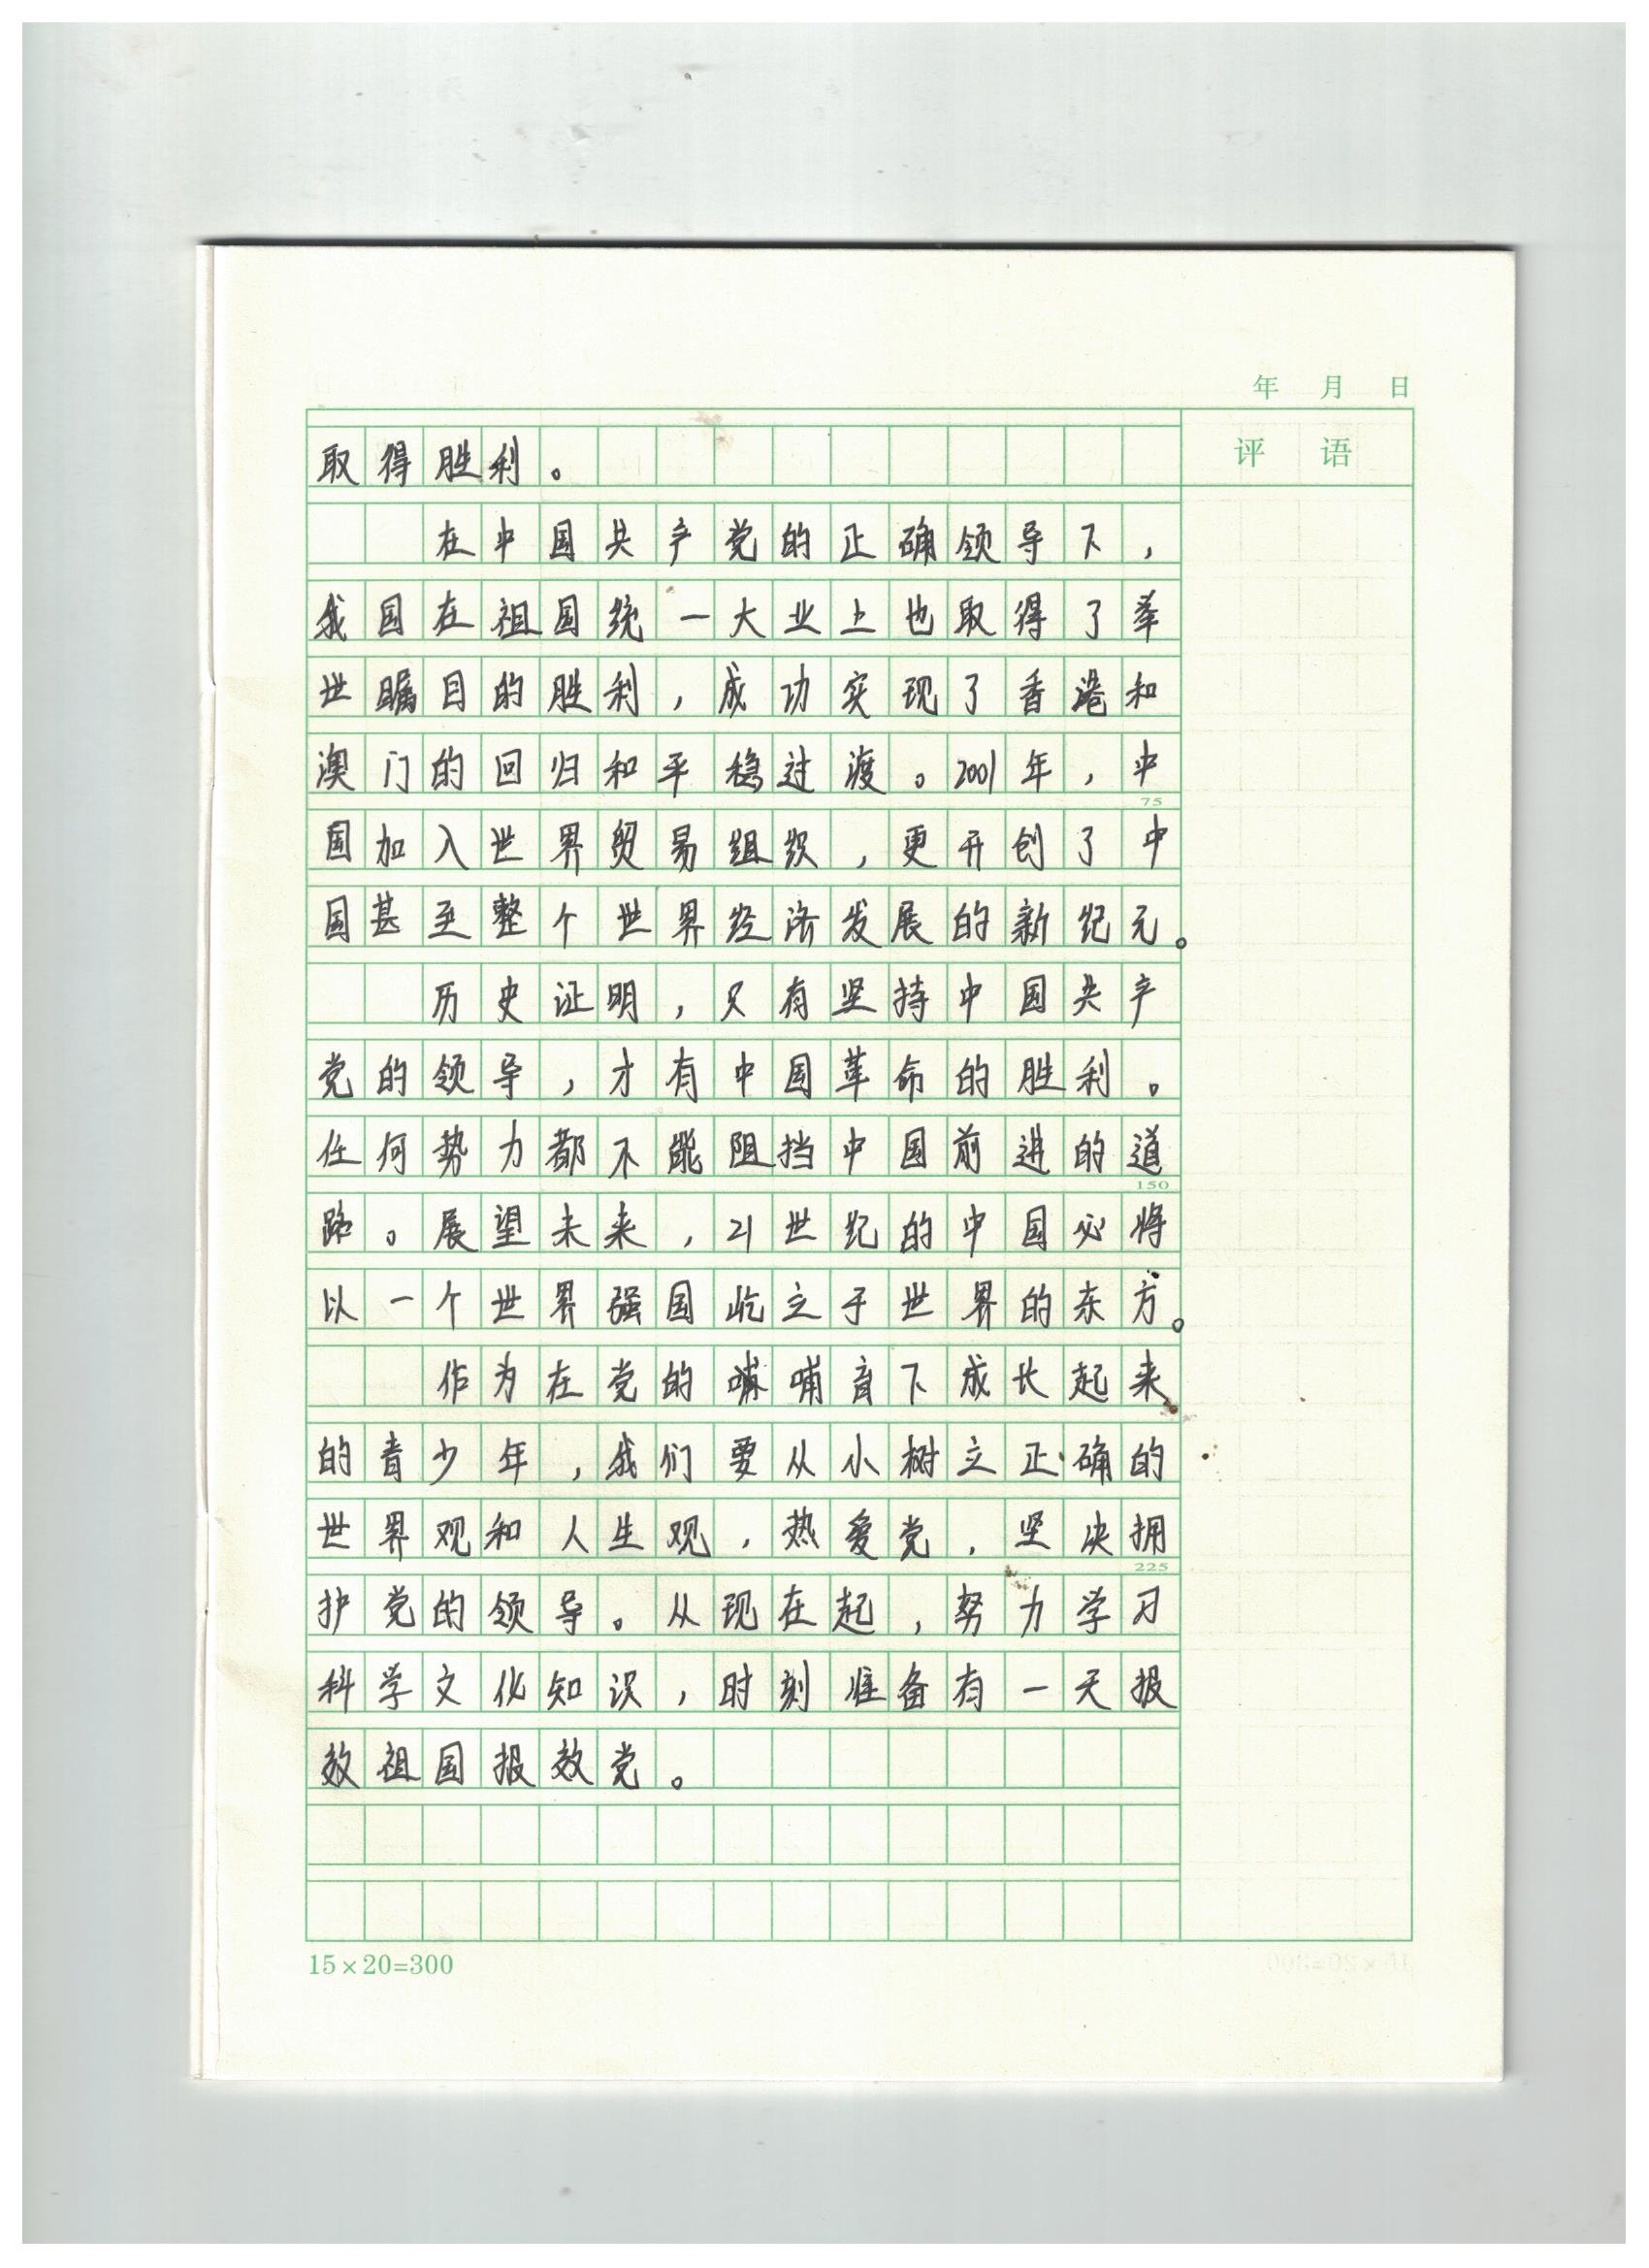 年 月 日
评 语
取得胜利。
在中国共产党的正确领导下，
我国在祖国统一大业上也取得了举
世瞩目的胜利，成功实现了香港和
澳门的回归和平稳过渡。2001年，中
75
国加入世界贸易组织，更开创了中
国甚至整个世界经济发展的新纪元。
历史证明，只有坚持中国共产
党的领导，才有中国革命的胜利。
任何势力都不能阻挡中国前进的道
150
路。展望未来，21世纪的中国必将
以一个世界强国屹立于世界的东方。
作为在党的哺哺育下成长起来
的青少年，我们要从小树立正确的
世界观和人生观，热爱党，坚决拥
225
护党的领导。从现在起，努力学习
科学文化知识，时刻准备有一天报
效祖国报效党。
15×20=300